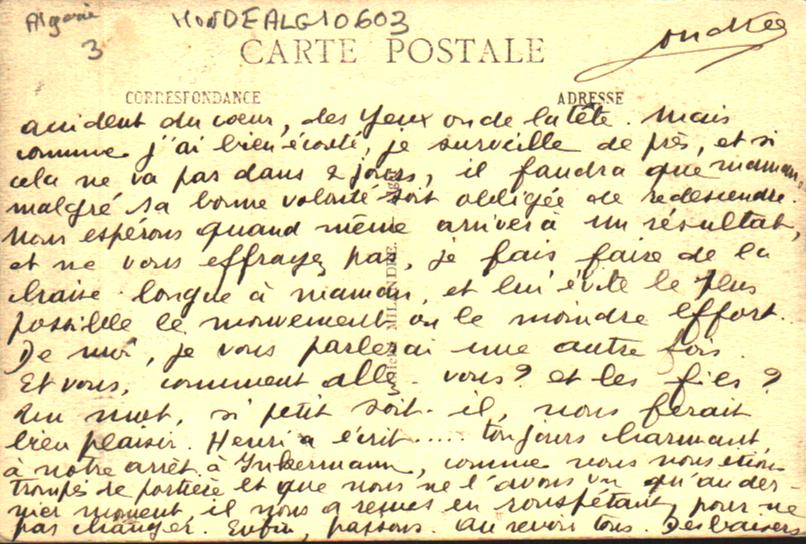 Algerie
3
HONDEALG10603
CARTE POSTALE
CORRESPONDANCE
ADRESSE
accident du cœur, des yeux ou de la tête. Mais
comme j'ai bien écouté, je surveille de près, et si
cela ne va pas dans 2 jours, il faudra que maman,
malgré sa bonne volonté soit obligée de redescendre.
Nous espérons quand même arriver à un résultat,
et ne vous effrayez pas, je fais faire de la
chaise-longue à maman, et lui évite le plus
possible le mouvement ou le moindre effort.
De moi, je vous parlerai une autre fois.
Et vous, comment allez-vous? et les fies?
Un mot, si petit soit-il, nous ferait
bien plaisir. Henri a écrit ..... toujours charmant
à notre arrêt à Inkermann, comme nous nous étions
trompés de portière et que nous ne l'avons vu qu'au der-
nier moment, il nous a remis en rouspétant, pour ne
pas changer. Enfin, passons. Au revoir tous. Des baisers